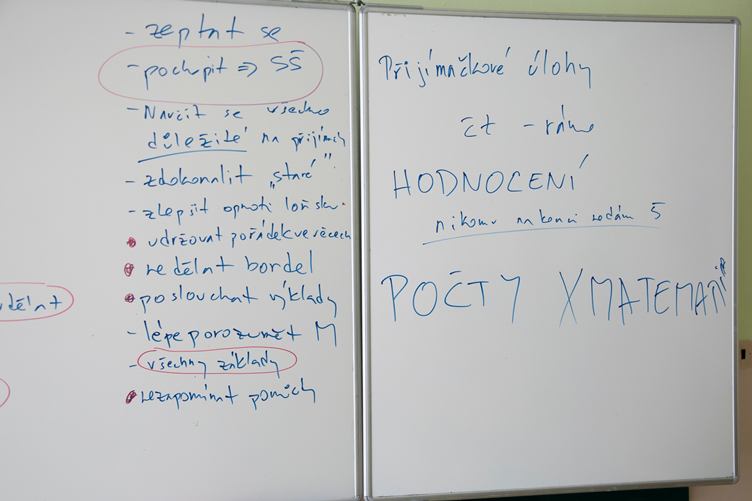 - zeptat se
- pochopit => SŠ
- Naučit se všechno
důležité na přijímačky
- zdokonalit "staré"
- zlepšit oproti loňsku.
udržovat pořádek ve věcech
nedělat bordel
dělat
poslouchat výklady
- lépe porozumět M
- všechny základy
nezapomínat pomůcky
Přijímačkové úlohy
čt - ráno
HODNOCENÍ
nikomu na konci nedám 5
POČTY X MATEMATIKA